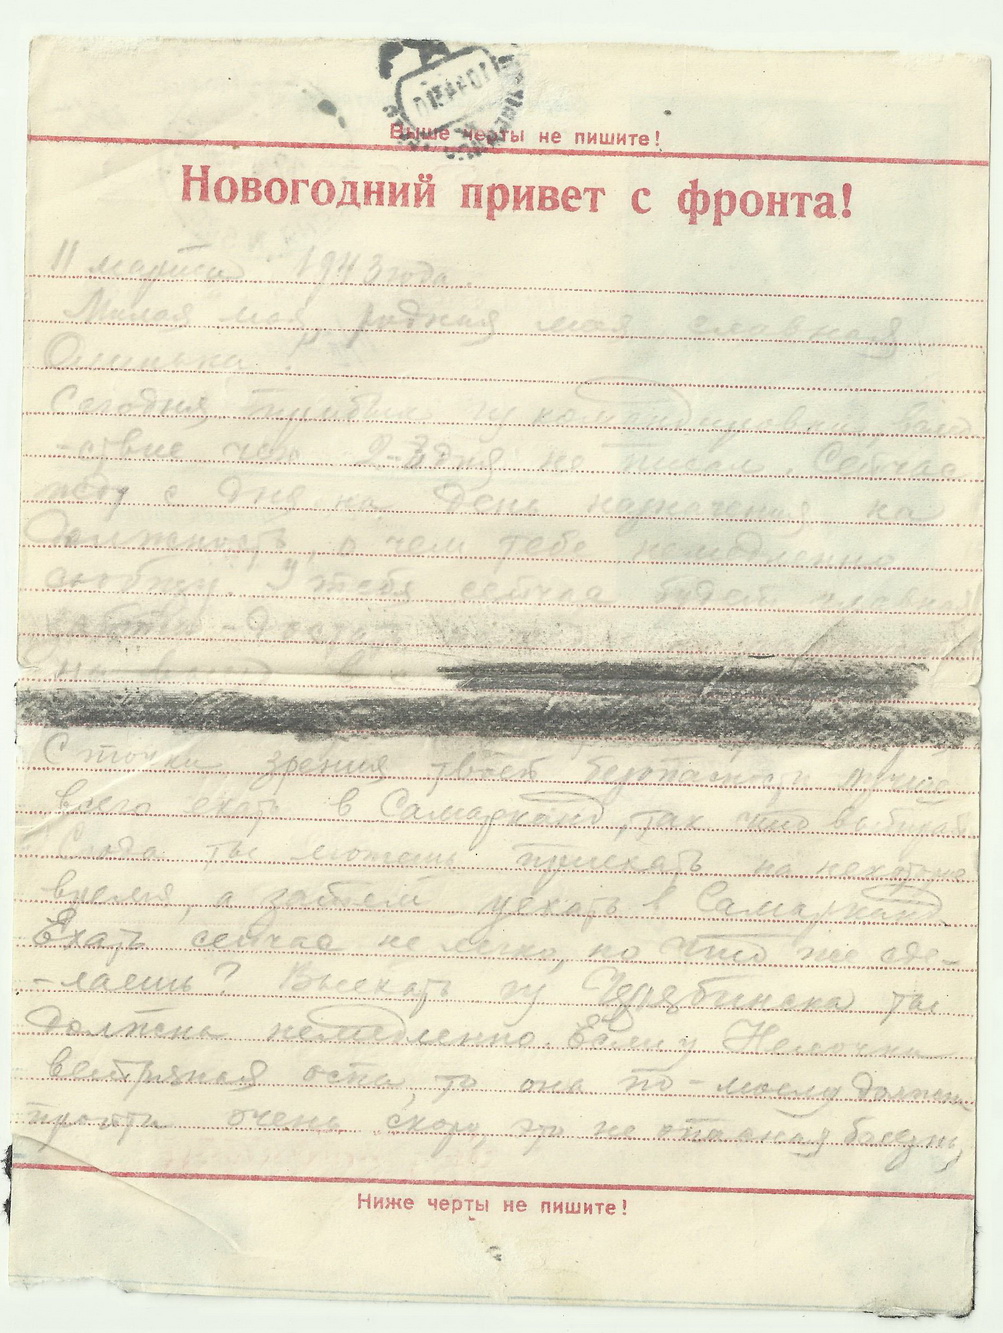 Выше черты не пишите!
Новогодний привет с фронта!
11 марта 1943 года.
Милая моя, родная моя славная
Сегодня прибыл из командировки, вслед-
-ствие чего 2-3 дня не писал. Сейчас
жду с дня на день назначения на
должность, о чем тебе немедленно
сообщу. У тебя сейчас будет
С точки зрения твоей безопасности лучше
всего ехать в Самарканд, так что выбирай.
Сюда ты можешь приехать на некоторое
время, а затем уехать в Самарканд.
Ехать сейчас не легко, но что же сде-
-лаешь? Выехать из Челябинска ты
должна немедленно. Если у Нелочки
ветряная оспа, то она по-моему должна
пройти очень скоро, это не опасная болезнь,
Ниже черты не пишите!